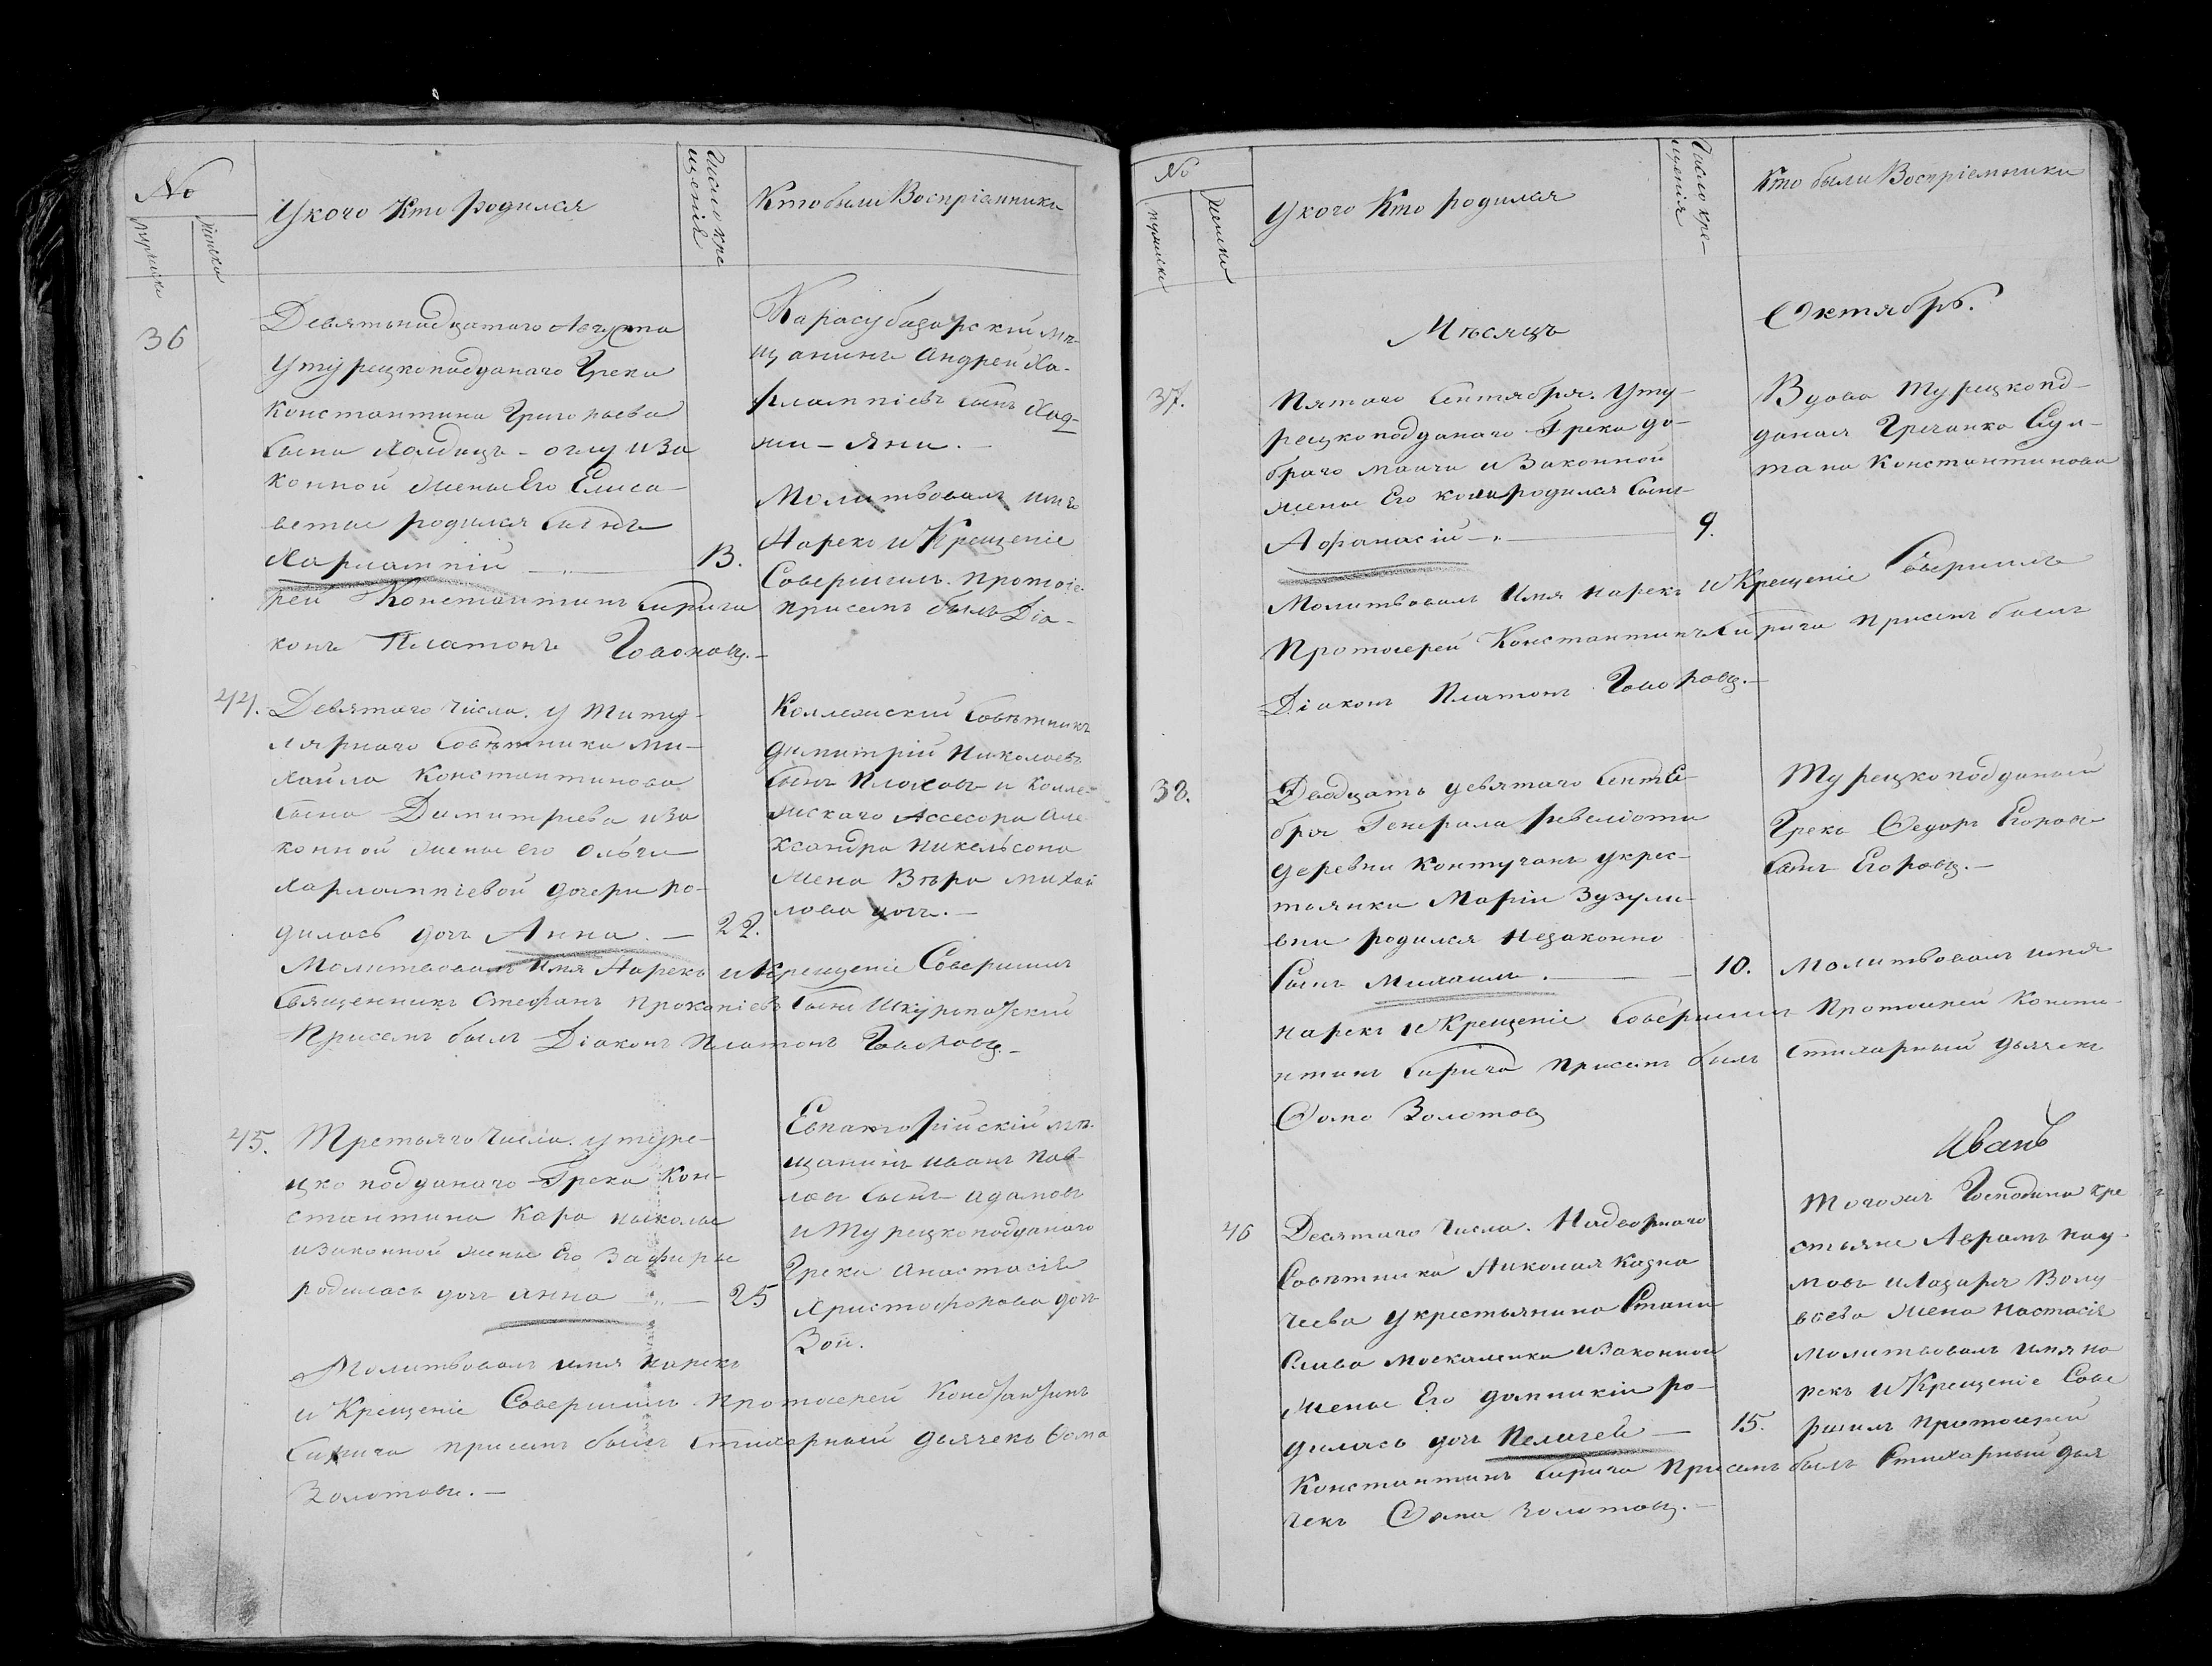 №
мужеска
женска
У кого кто родился
Число кре
щенія
Кто были Воспріемники
36
Девятьнадцатаго Августа
У турецкоподданаго Грека
Константина Григорьева
сына
конной жены Его Елиса-
веты родился сынъ
Харлампій
13.
Карасубазарскій мѣ-
щанинъ Андрей Ха-
рлампіевъ сынъ Хад-
жи-Яни.
Молитвовалъ имя
Нарекъ и Крещеніе
Совершилъ протоіе-
рей Константинъ Сирича присемъ былъ Діа-
конъ Платонъ
44.
Девятаго числа. у титу-
лярнаго Совѣтника Ми-
хайла Константинова
сына Димитріева и за
конной жены его Ольги
Харлампіевой дочери ро-
дилась дочь Анна. —
22.
Коллежскій Совѣтникъ
Димитрій Николаевъ
сынъ Плоховъ и колле-
жскаго Ассесора Але
ксандра Никельсона
жена Вѣра Михай
лова дочь. —
Молитвовалъ имя Нарекъ и Крещеніе Совершилъ
Священникъ Стефанъ Прокопіевъ сынъ
Присемъ былъ Діаконъ Платонъ
45.
Третьяго числа. у туре-
цко подданаго Грека Кон-
стантина Кара
и законной жены Его Зафиры
родилась дочь Анна
25
Евпаторійскій мѣ-
щанинъ Иванъ Пав-
ловъ сынъ Адамовъ
и Турецкоподданаго
Грека Анастасія
Христофорова дочь
Зоя.
Молитвовалъ имя нарекъ
и Крещеніе Совершилъ Протоіерей Константинъ
Сирича присемъ былъ стихарный дьячекъ Фома
Золотовъ. —
№
мужеска
женска
У кого кто родился
Число кре-
щенія
Кто были Воспріемники
Мѣсяцъ
Октябрь.
37.
Пятаго Сентября. У ту-
рецкоподданаго Грека до-
браго и Законной
жены Его родился сынъ
Афанасій
9.
Вдова Турецкопод-
даная Гречанка Сул-
тана Константинова
Молитвовалъ Имя нарекъ и Крещеніе Совершилъ
Протоіерей Константинъ Сирича присемъ былъ
Діаконъ Платонъ
38.
Двадцать девятаго Сентя-
бря Генерала Ревеліоти
деревни у крес-
тьянки Маріи
родился Незаконно
Сынъ Михаилъ.
10.
Турецкоподданый
Грекъ Федоръ Егоровъ
сынъ Егоровъ. —
Молитвовалъ имя
нарекъ и Крещеніе Совершилъ Протоіерей Конста-
нтинъ Сирича присемъ былъ Стихарный дьячекъ
Фома Золотовъ
46
Десятаго числа. Надворнаго
Совѣтника Николая Казна
чеева у крестьянина Стани
слава Москаленка и законной
жены Его Домникіи ро-
дилась дочь Пелагея —
15.
Иванъ
Тогожъ Господина кре
стьяне Аврамъ
мовъ и Лазаря
жена Настасія
молитвовалъ имя на
рекъ и Крещеніе Сове
ршилъ Протоіерей
Константинъ Сирича Присемъ былъ Стихарный дья
чекъ Фома Золотовъ. —